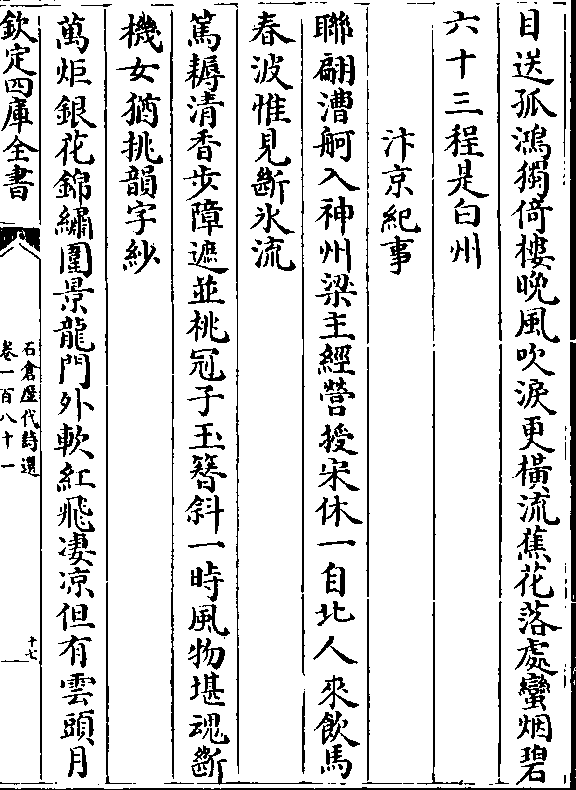 目送孤鴻獨倚樓晚風吹淚更橫流蕉花落處蠻烟碧
六十三程是白州
汴京紀事
聯翩漕舸入神州梁主經營授宋休一自北人來飲馬
春波惟見斷氷流
篤耨清香步障遮並桃冠子玉簪斜一時風物堪魂斷
機女猶挑韻字紗
萬炬銀花錦繡圍景龍門外軟紅飛凄凉但有雲頭月
欽定四庫全書
石倉歷代詩選
卷一百八十一
十七